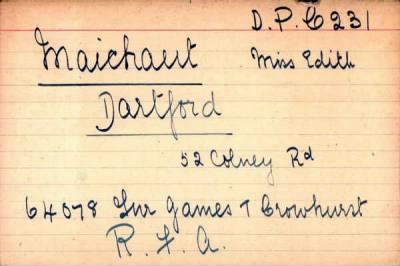 D.P. C231
Maichant Miss Edith
Dartford
52 Colney Rd
64078 Gnr James T Crowhurst
R.F.A.